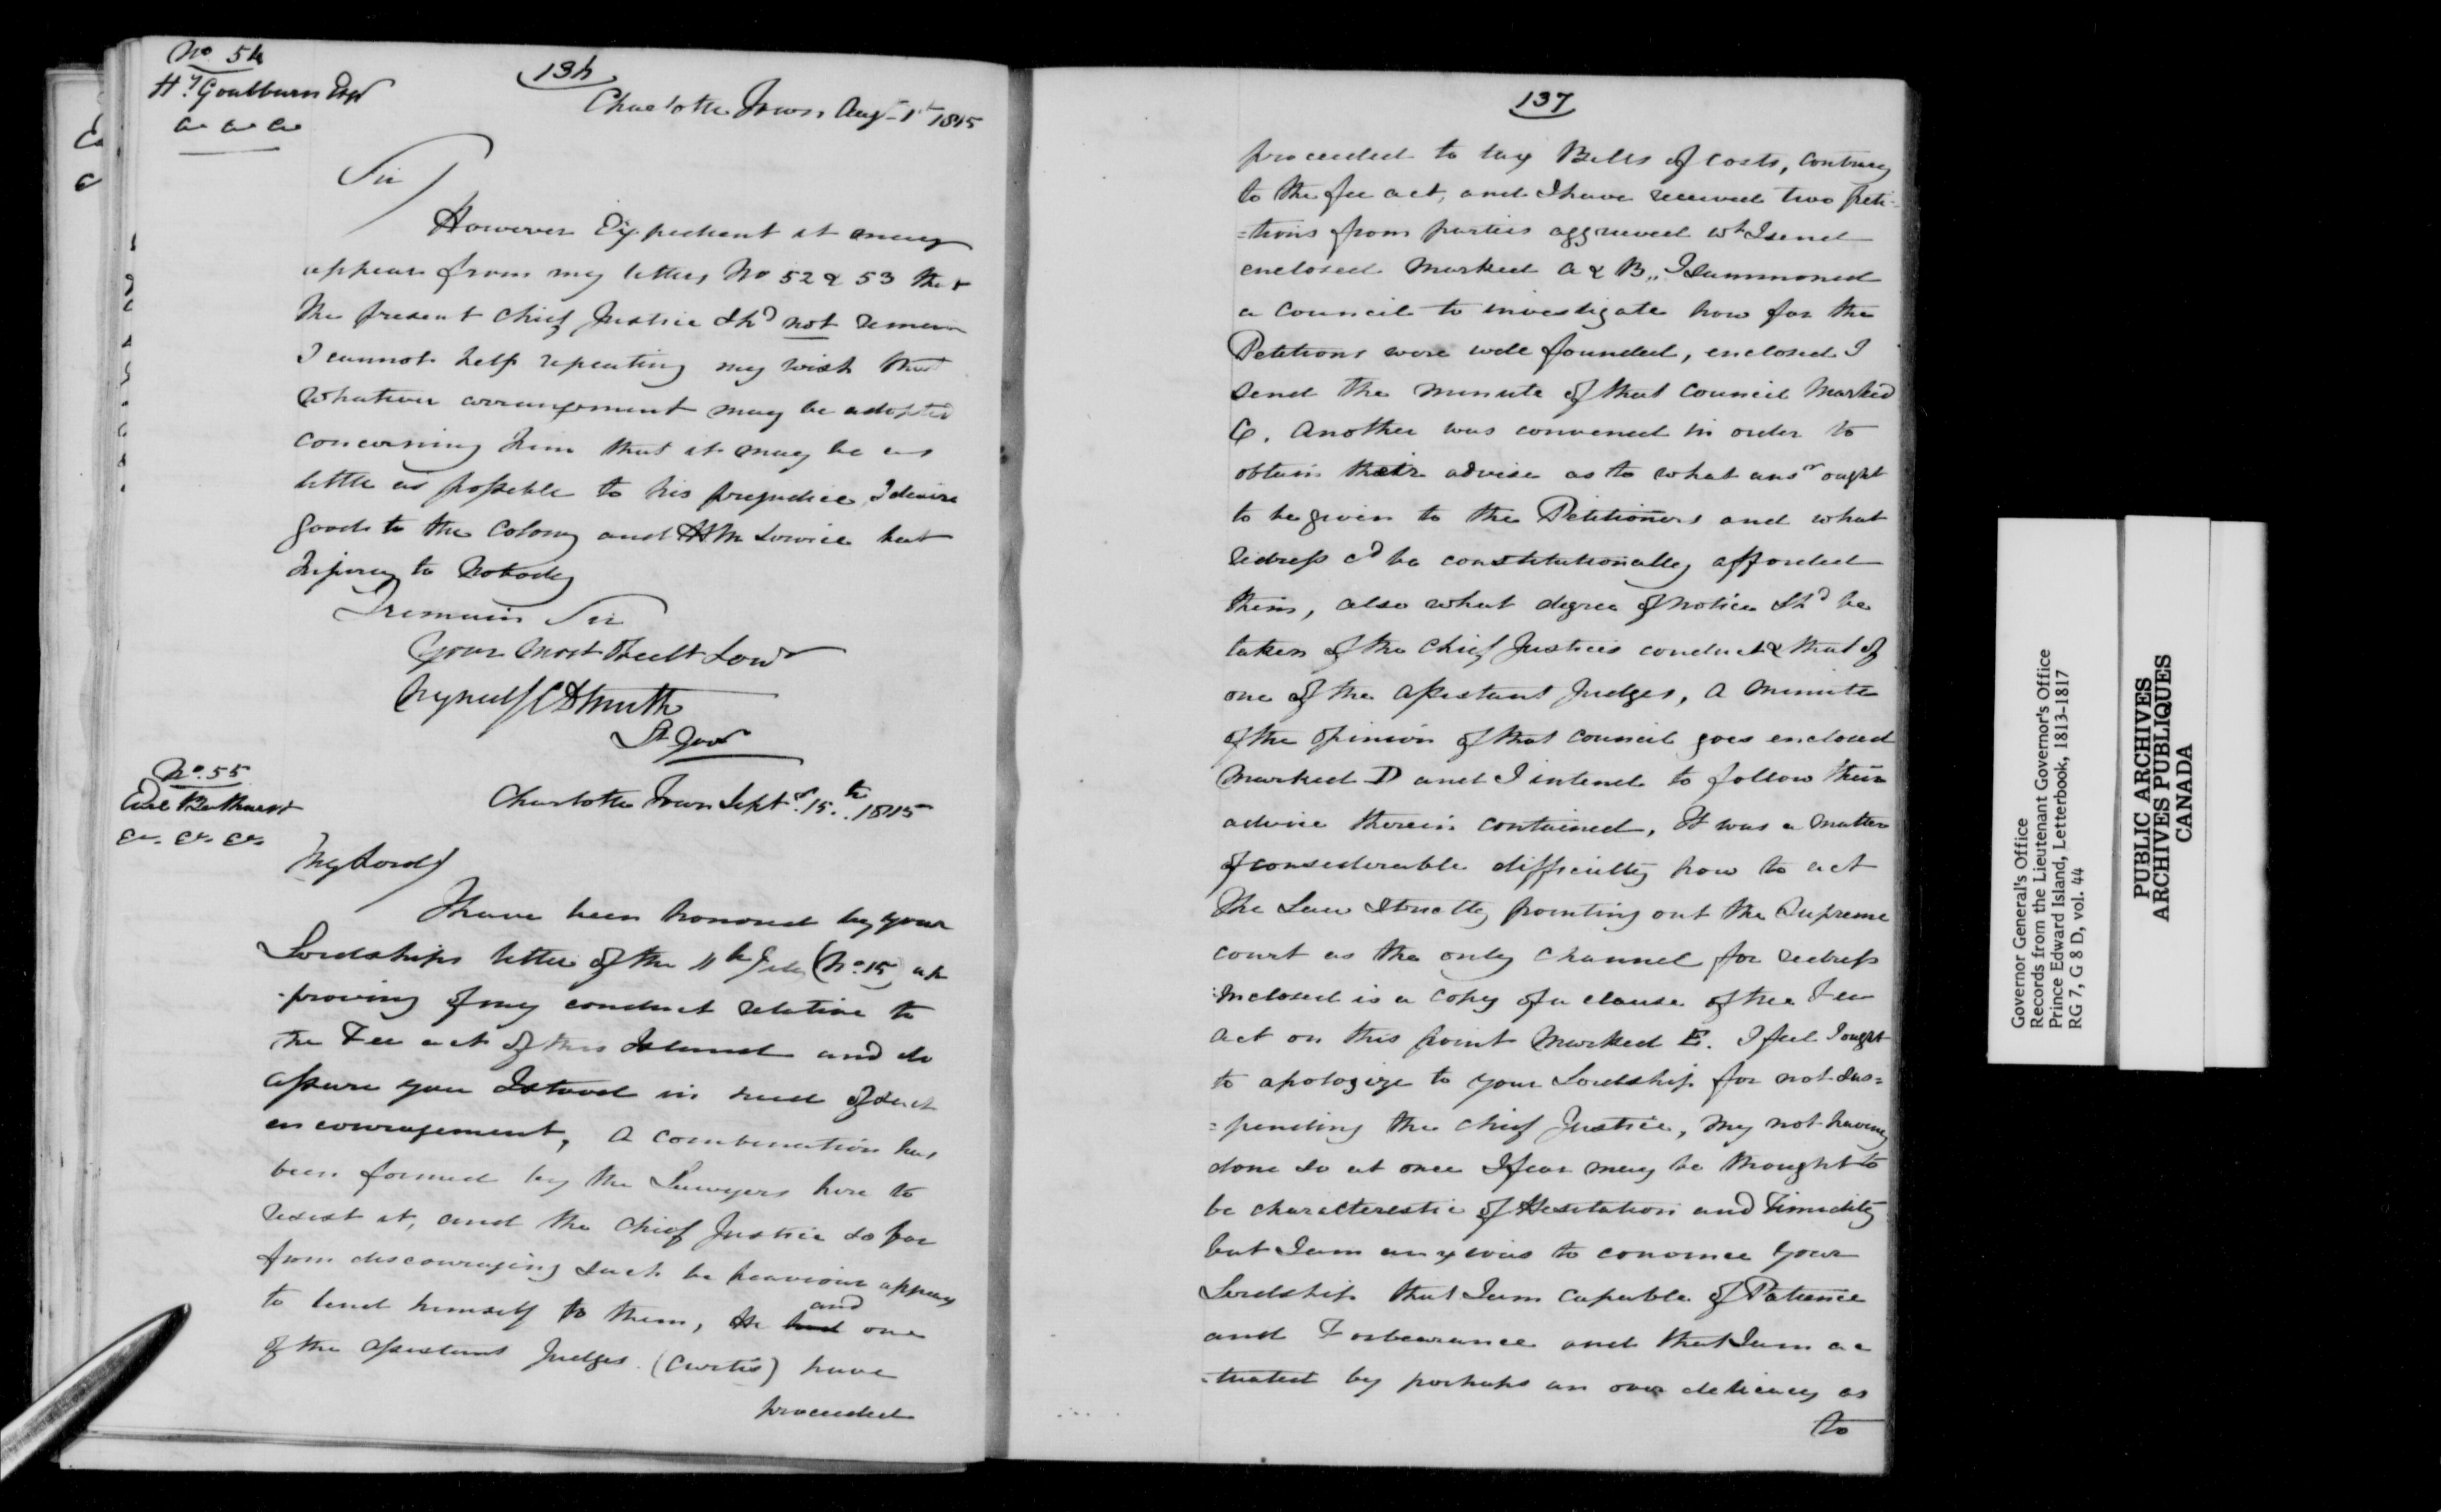 No. 54
Hy. Goulburn Esqr
&c &c &c
136
Charlotte Town Augt 1st 1815
Sir
However Expedient it may
appear from my letters No 52 & 53 that
the present Chief Justice Shd not remain
I cannot help repeating my wish that
whatever arrangement may be adopted
concerning him that it may be as
little as possible to his prejudice, I desire
good to the Colony and HM Service but
Injury to Nobody
I remain Sir
Your most Obedt Servt
Signed/ C D Smith
Lt Govr
No. 55
Earl Bathurst
&c. &c. &c.
Charlotte Town Septr. 15th. 1815
My Lord
I have been honored by your
Lordships letter of the 11th July (No. 15) ap
-proving of my conduct relative to
the Fee act of this Island and do
assure you I stood in need of such
encouragement, A combination has
been formed by the Lawyers here to
resist it, and the Chief Justice so far
from discouraging such behaviour appears
to lend himself to them, He had and one
of the assistant Judges (Curtis) have
proceeded
137
proceeded to tax Bills of costs, contrary
to the fee act, and I have received two peti-
=tions from parties aggrieved wh I send
enclosed marked A & B,, I summoned
a council to investigate how far the
Petitions were well founded, enclosed I
send the minute of that council marked
C. Another was convened in order to
obtain their advise as to what ansr ought
to be given to the Petitioners and what
redress cd be constitutionally afforded
them, also what degree of notice Shd be
taken of the Chief Justices conduct & that of
one of the assistant Judges, A minute
of the opinion of that council goes enclosed
marked D and I intend to follow their
advice therein contained, It was a matter
of considerable difficulty how to act
The Law Strictly pointing out the Supreme
court as the only channel for redress
Inclosed is a copy of a clause of the Fee
act on this point marked E. I feel I ought
to apologize to your Lordship for not sus=
=pending the Chief Justice, my not having
done so at once I fear may be thought to
be characteristic of Hesitation and Timidity
but I am anxious to convince your
Lordship that I am capable of Patience
and Forbearance and that I am ac
-tuated by perhaps an over delicacy as
to
Governor General's Office
Records from the Lieutenant Governor's Office
Prince Edward Island, Letterbook, 1813-1817
RG 7, G 8 D, vol. 44
PUBLIC ARCHIVES
ARCHIVES PUBLIQUES
CANADA